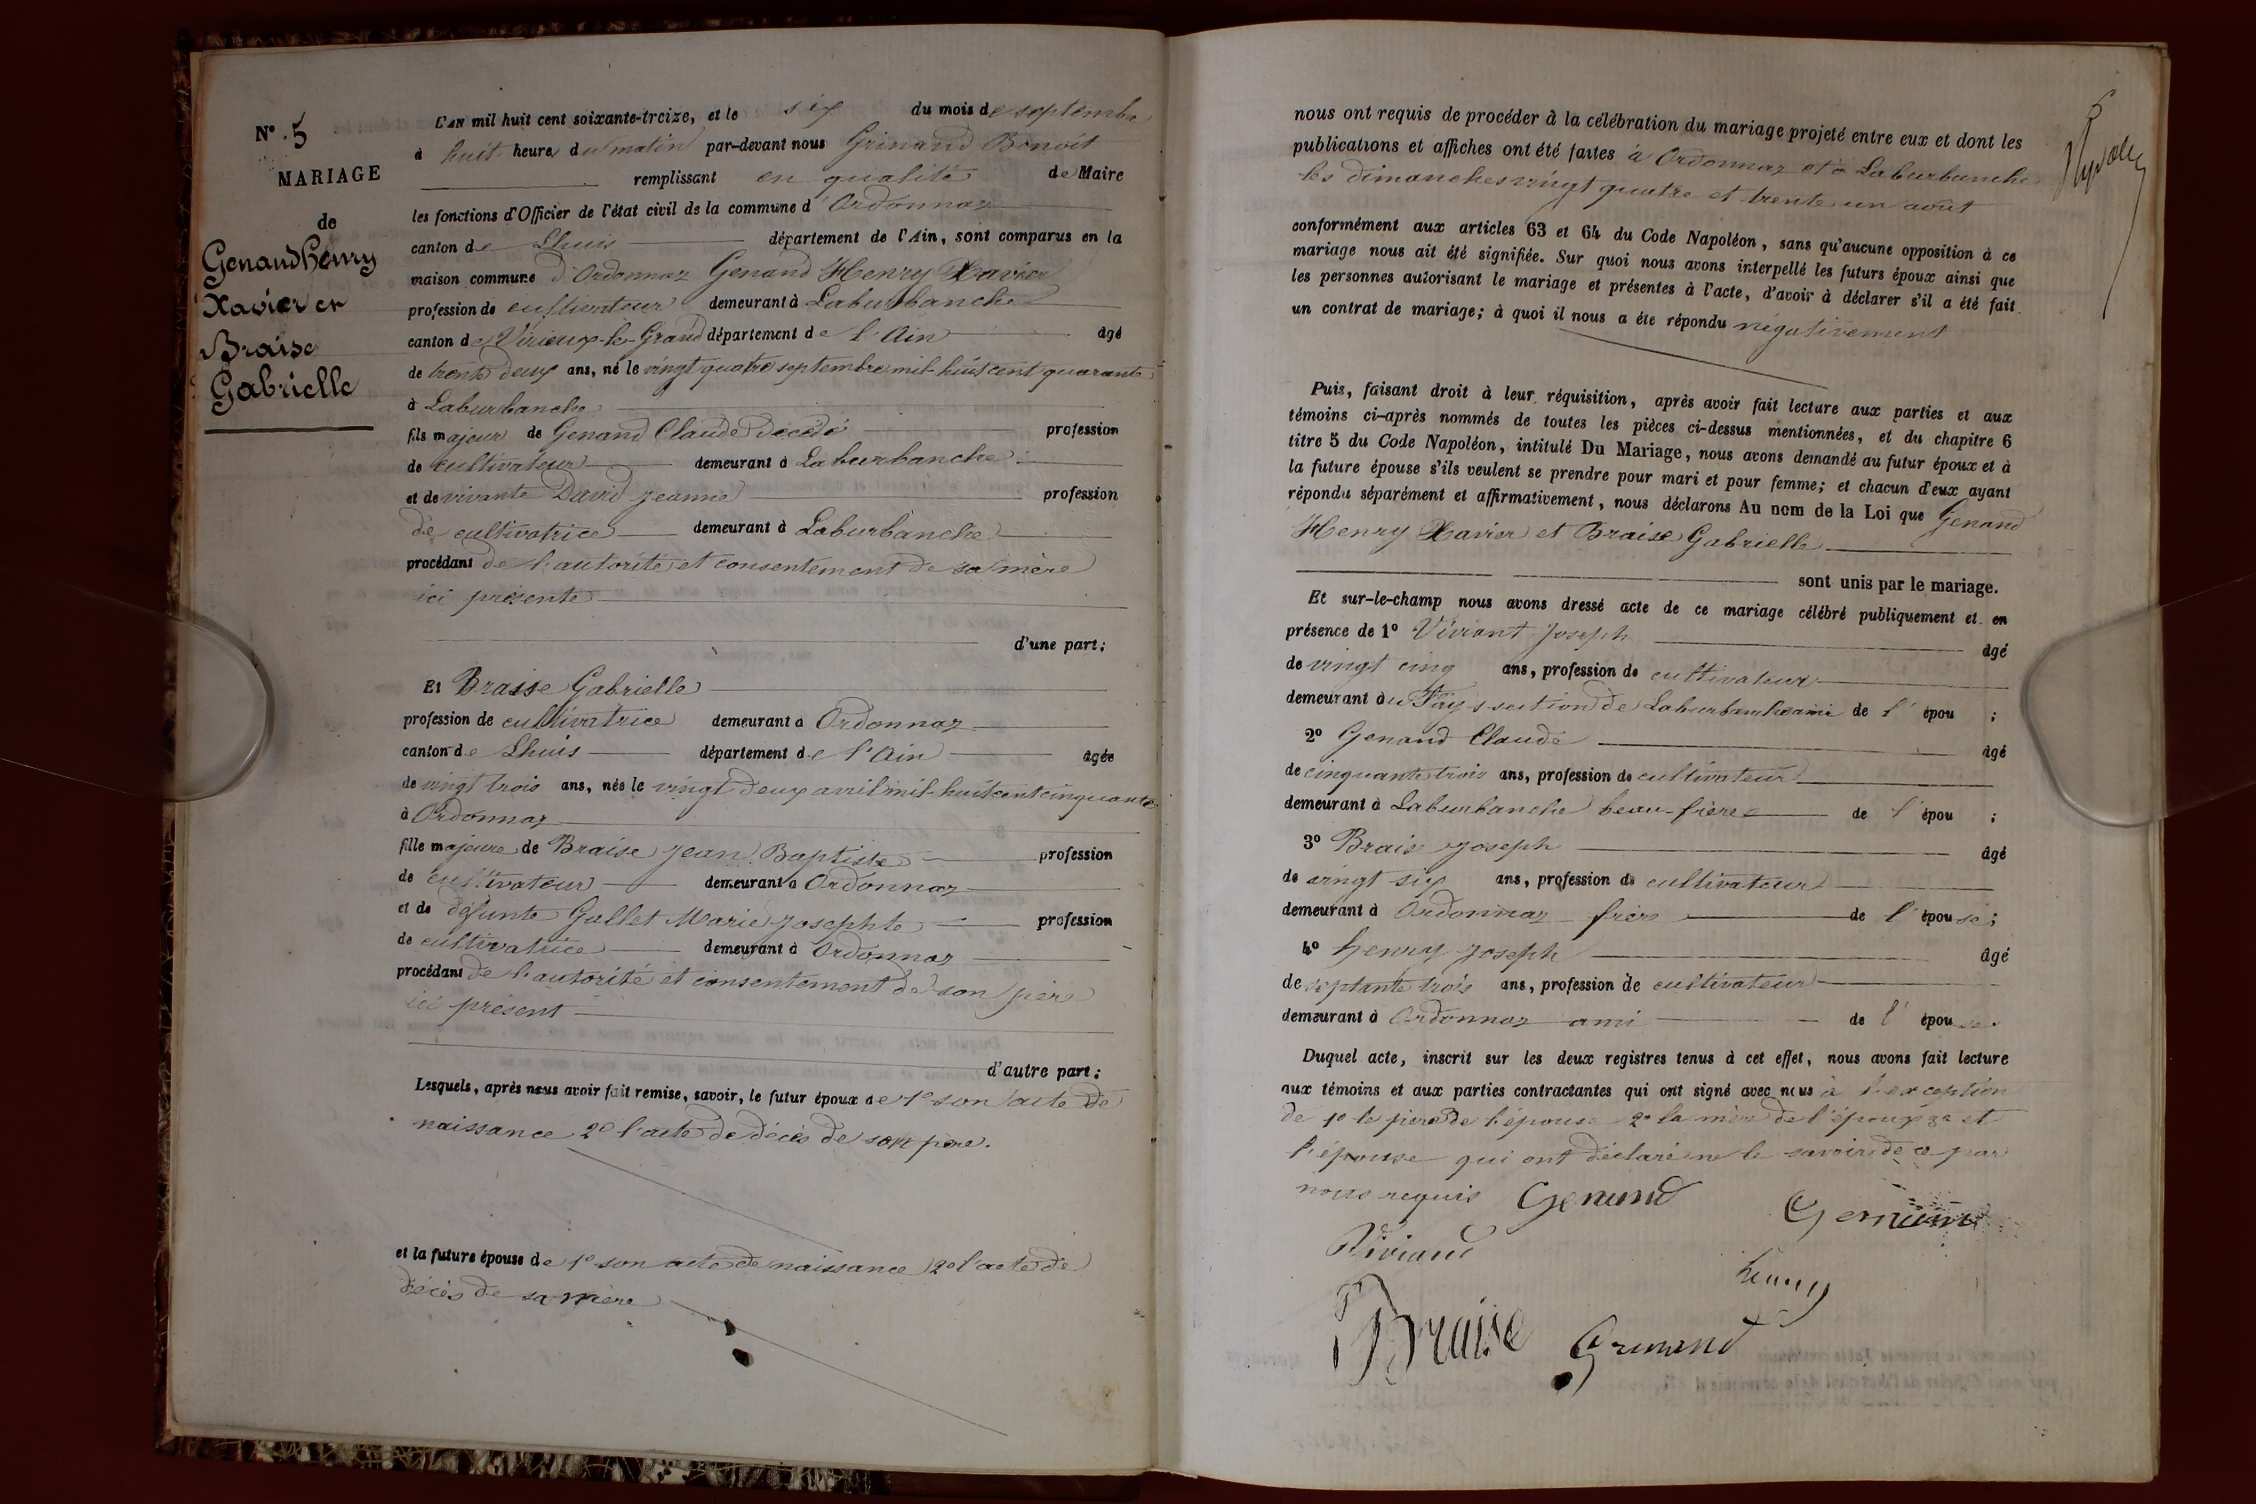 N° 5
MARIAGE
de
Genand Henry
Xavier et
Braise
Gabrielle
L'AN mil huit cent soixante-treize, et le six du mois de septembre
à huit heures du matin par-devant nous Grinand Benoit
remplissant en qualité de Maire
les fonctions d'Officier de l'état civil de la commune d'Ordonnaz
canton de Lhuis département de l'Ain, sont comparus en la
maison commune d'Ordonnaz Genand Henry Xavier
profession de cultivateur demeurant à Laburbanche
canton de Virieux-le-Grand département de l'Ain âgé
de trente deux ans, né le vingt quatre septembre mil huit cent quarante
à Laburbanche
fils majeur de Genand Claude décédé profession
de cultivateur demeurant à Laburbanche
et de vivante David Jeanne profession
de cultivatrice demeurant à Laburbanche
procédant de l'autorité et consentement de sa mère
ici présente
d'une part;
Et Braise Gabrielle
profession de cultivatrice demeurant à Ordonnaz
canton de Lhuis département de l'Ain âgée
de vingt trois ans, née le vingt deux avril mil huit cent cinquante
à Ordonnaz
fille majeure de Braise Jean Baptiste profession
de cultivateur demeurant à Ordonnaz
et de défunte Gallet Marie Josephte profession
de cultivatrice demeurant à Ordonnaz
procédant de l'autorité et consentement de son père
ici présent
d'autre part;
Lesquels, après nous avoir fait remise, savoir, le futur époux de 1° son acte de
naissance 2° l'acte de décès de son père.
et la future épouse de 1° son acte de naissance 2° l'acte de
décès de sa mère
nous ont requis de procéder à la célébration du mariage projeté entre eux et dont les
publications et affiches ont été faites à Ordonnaz et à Laburbanche
les dimanches vingt quatre et trente un août
conformément aux articles 63 et 64 du Code Napoléon, sans qu'aucune opposition à ce
mariage nous ait été signifiée. Sur quoi nous avons interpellé les futurs époux ainsi que
les personnes autorisant le mariage et présentes à l'acte, d'avoir à déclarer s'il a été fait
un contrat de mariage; à quoi il nous a été répondu négativement
Puis, faisant droit à leur réquisition, après avoir fait lecture aux parties et aux
témoins ci-après nommés de toutes les pièces ci-dessus mentionnées, et du chapitre 6
titre 5 du Code Napoléon, intitulé Du Mariage, nous avons demandé au futur époux et à
la future épouse s'ils veulent se prendre pour mari et pour femme; et chacun d'eux ayant
répondu séparément et affirmativement, nous déclarons Au nom de la Loi que Genand
Henry Xavier et Braise Gabrielle
sont unis par le mariage.
Et sur-le-champ nous avons dressé acte de ce mariage célébré publiquement et en
présence de 1° Viviant Joseph âgé
de vingt cinq ans, profession de cultivateur
demeurant à Fays section de Laburbanche ami de l'épou ;
2° Genand Claude âgé
de cinquante trois ans, profession de cultivateur
demeurant à Laburbanche beau-frère de l'épou ;
3° Brais Joseph âgé
de vingt six ans, profession de cultivateur
demeurant à Ordonnaz frère de l'épouse;
4° henry Joseph âgé
de septante trois ans, profession de cultivateur
demeurant à Ordonnaz ami de l'épouse
Duquel acte, inscrit sur les deux registres tenus à cet effet, nous avons fait lecture
aux témoins et aux parties contractantes qui ont signé avec nous à l'exception
de 1° le père de l'épouse 2° la mère de l'époux 3° et
l'épouse qui ont déclaré ne le savoir de ce par
nous requis Genand
Viviand
henry
Braise Grinand